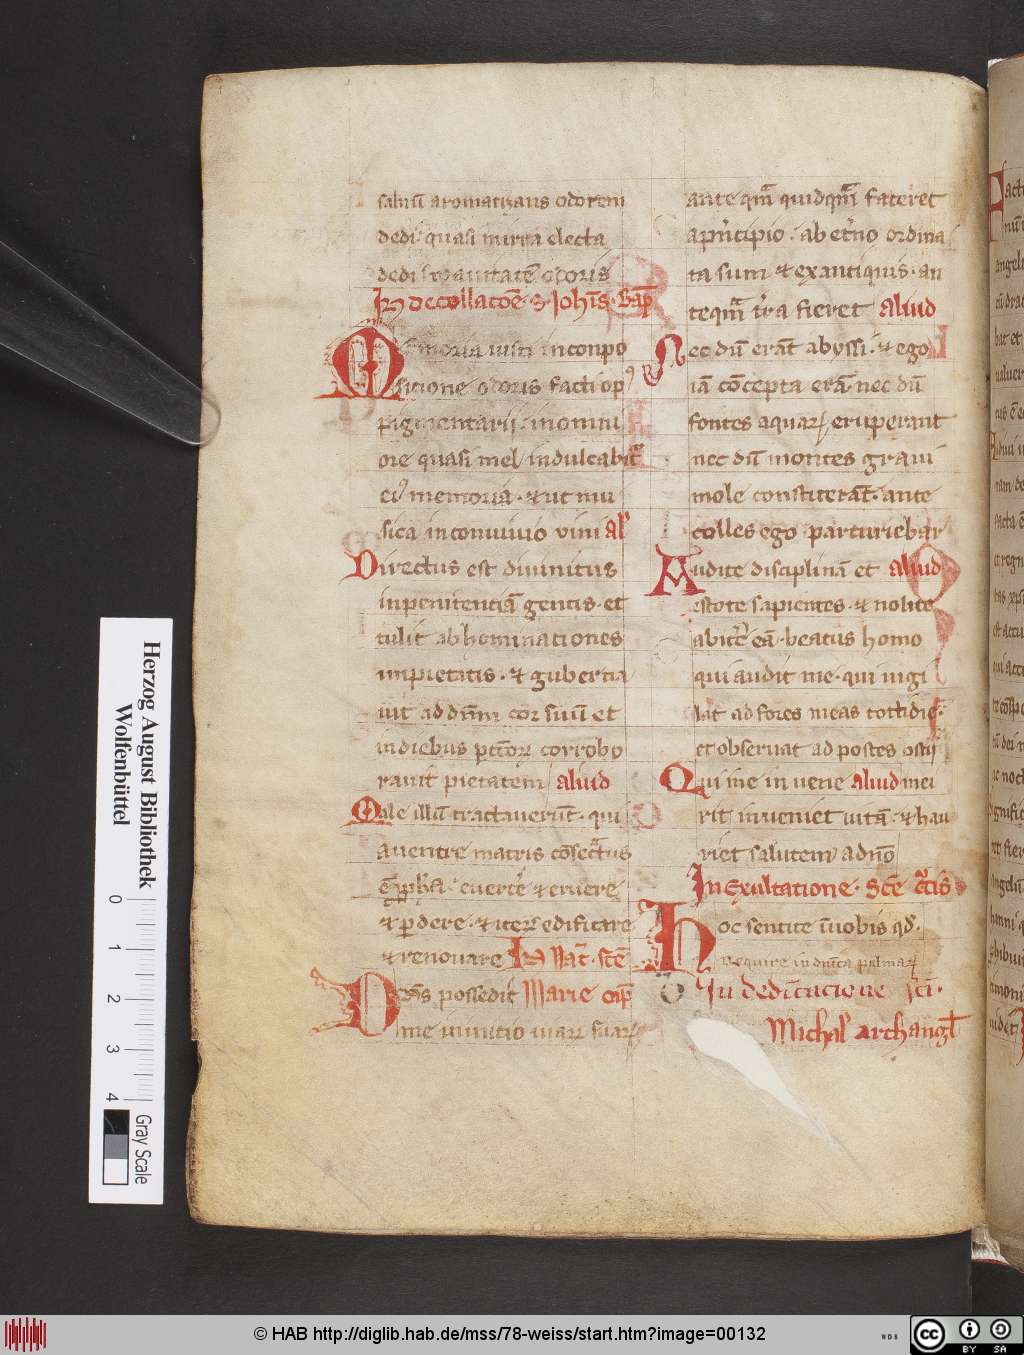 salmū aromatizans odorem
dedi· quasi mirra electa
dedi suavitatē odoris
In decollacōe· S· Joh̄is· Bap̄
Memoria iusti in conpo
sicione odoris facti op⁹
pigmentarii· in omni
ore quasi mel indulcabit᷑
ei⁹ memoria· ⁊ ut mu
sica in conuiuio vini al'
Directus est divinitus
in penitentiā gentis· et
tulit abhominationes
impietatis· ⁊ guberna
uit ad dn̄m cor suū et
in diebus pcc̄oꝝ corrobo
ravit pietatem aliud
Male illū tractaverūt· qui
a ventre matris cōsecratus
ē ꝓph̄a· euert̄e ⁊ eruere
⁊ ꝑdere· ⁊ iterū edificare
⁊ renovare In Nat̄· sc̄e
Dn̄s possedit Marie
me in initio viaꝝ suaꝝ
ante qm̄ quidqm̄ faceret
a pn̄cipio· ab et̄no ordina
ta sum ⁊ ex antiquis· an
teqm̄ t̄ra fieret aliud
Nec dū erāt abyssi· ⁊ ego
iā cōcepta erā· nec dū
fontes aquaꝝ eruperant
nec dū montes gravi
mole constiterāt· ante
colles ego parturiebar
Audite disciplinā et aliud
estote sapientes· ⁊ nolite
abic̄e eā· beatus homo
qui audit me· qui uigi
lat ad fores meas cottidie·
et observat ad postes ostij
Qui me in vene aliud mei
rit inueniet vitā· ⁊ hau
riet salutem a dn̄o
In Exultatione· Sc̄e c̄cis
Hoc sentite ī vobis qd̄·
Require in dn̄ica palmaꝝ
In dedicacione sc̄i·
Michal' archangl̄
Herzog August Bibliothek
Wolfenbüttel
0 1 2 3 4
Gray Scale
© HAB http://diglib.hab.de/mss/78-weiss/start.htm?image=00132
WDB
cc BY SA